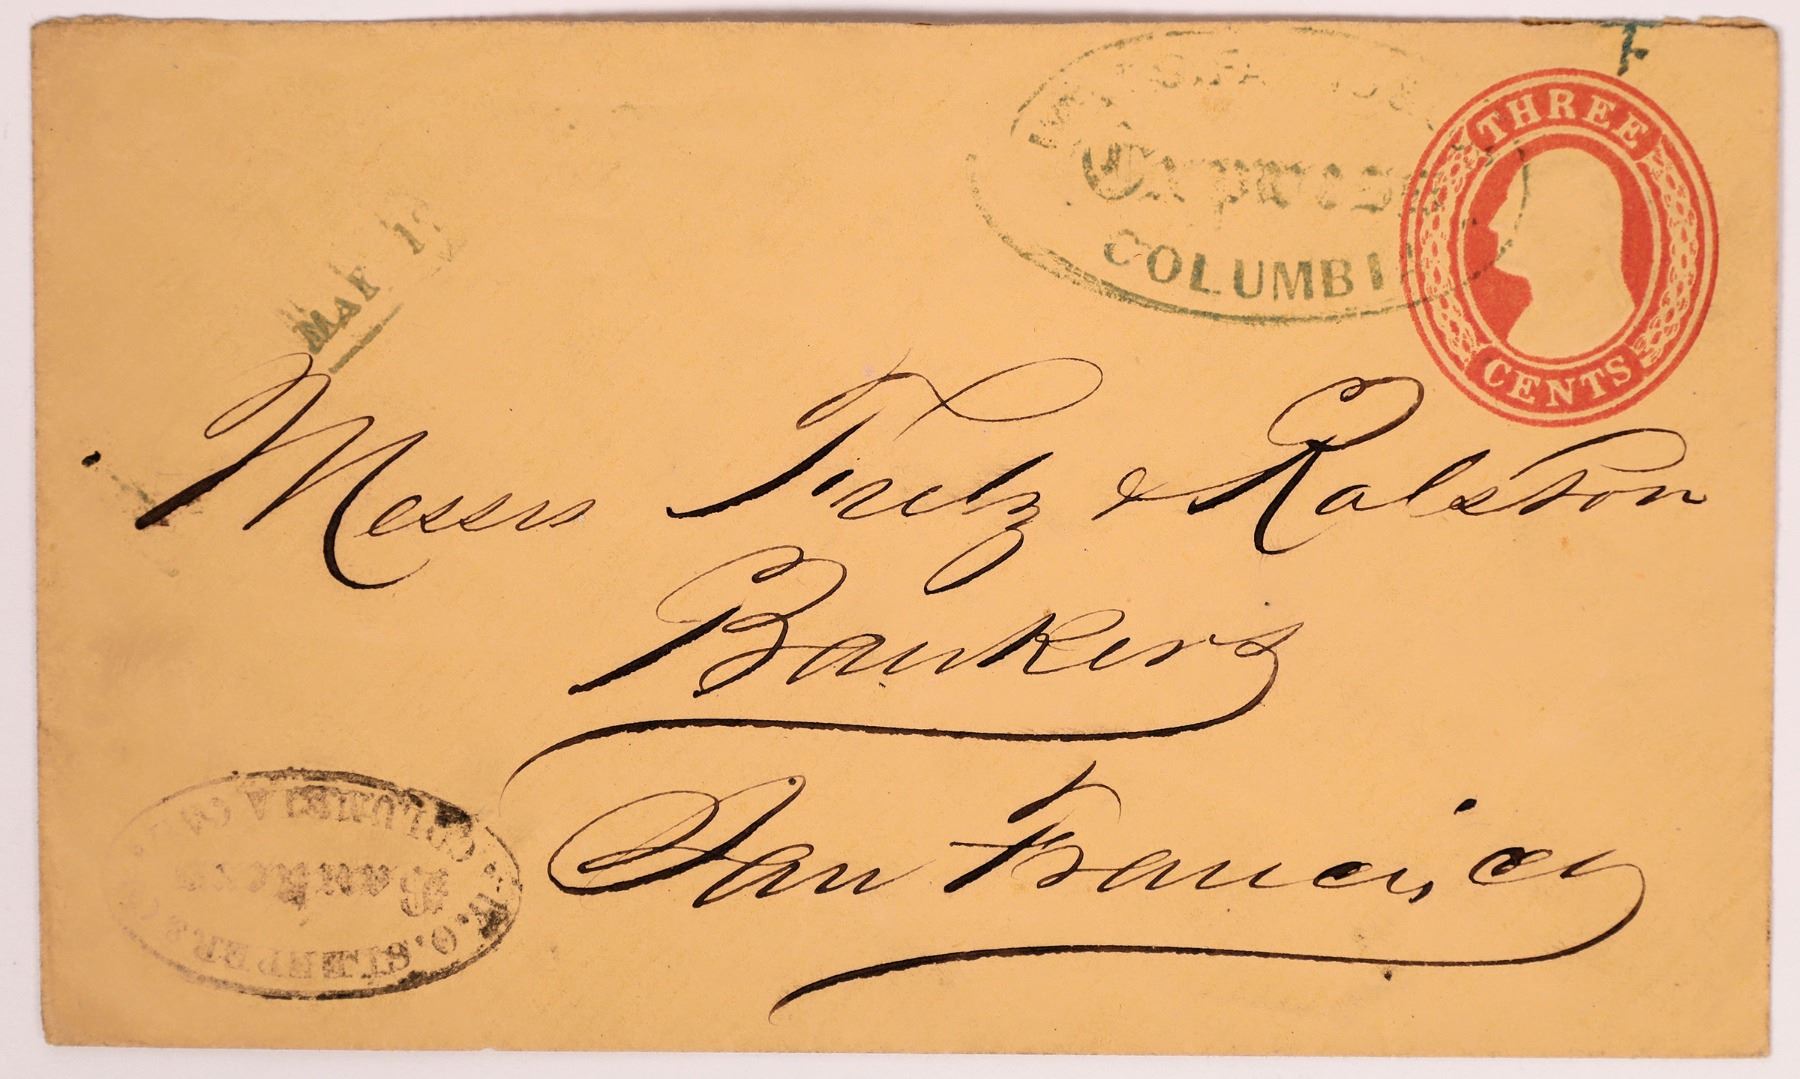 Express
COLUMBIA
THREE
CENTS
MAY
Messrs Fretz & Ralston
Bankers
San Francisco
W. O. SLEEPER & CO.
Bankers
COLUMBIA CAL